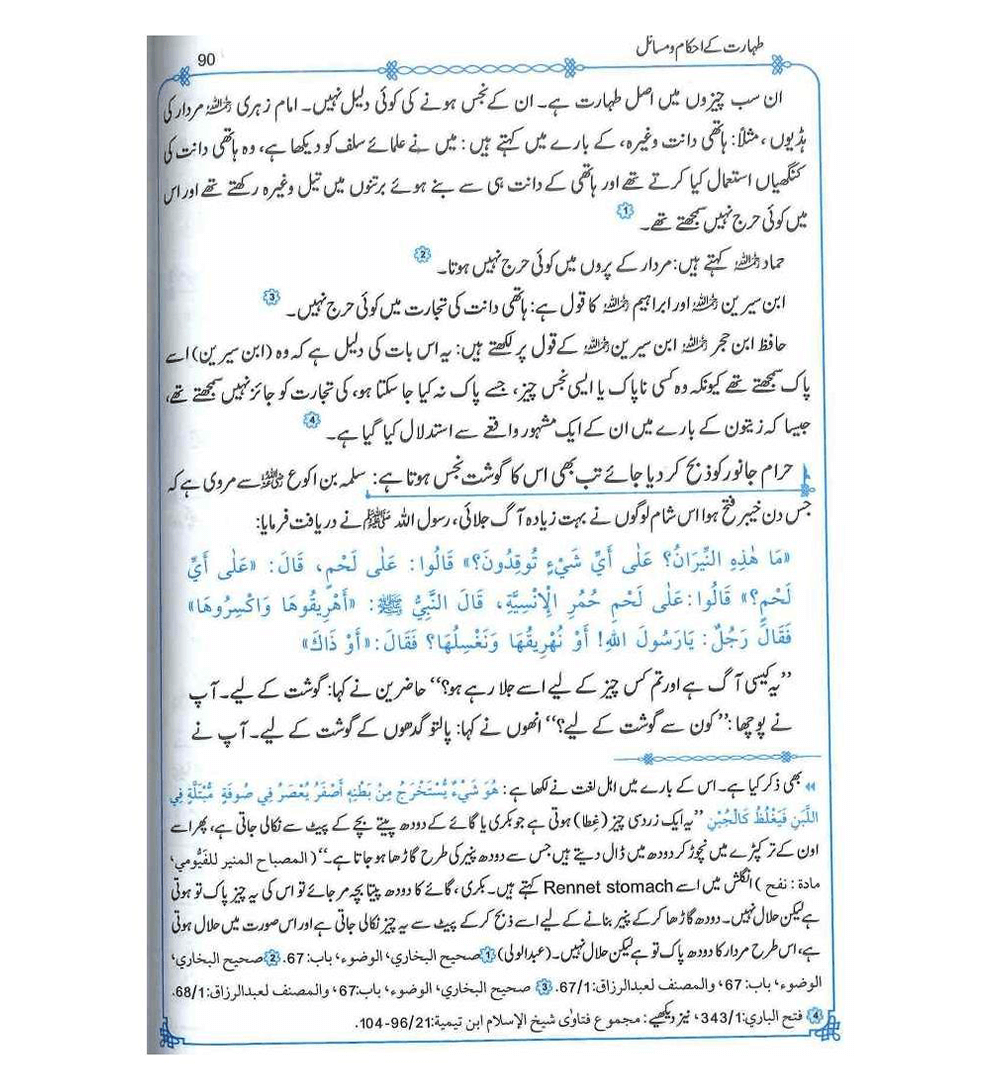 طہارت کے احکام و مسائل
90
ان سب چیزوں میں اصل طہارت ہے۔ ان کے نجس ہونے کی کوئی دلیل نہیں۔ امام زہری رحمہ اللہ مردار کی
ہڈیوں، مثلاً: ہاتھی دانت وغیرہ، کے بارے میں کہتے ہیں: میں نے علمائے سلف کو دیکھا ہے، وہ ہاتھی دانت کی
کنگھیاں استعمال کیا کرتے تھے اور ہاتھی کے دانت ہی سے بنے ہوئے برتنوں میں تیل وغیرہ رکھتے تھے اور اس
میں کوئی حرج نہیں سمجھتے تھے۔ 1
حماد رحمہ اللہ کہتے ہیں: مردار کے پروں میں کوئی حرج نہیں ہوتا۔ 2
ابن سیرین رحمہ اللہ اور ابراہیم رحمہ اللہ کا قول ہے: ہاتھی دانت کی تجارت میں کوئی حرج نہیں۔ 3
حافظ ابن حجر رحمہ اللہ ابن سیرین رحمہ اللہ کے قول پر لکھتے ہیں: یہ اس بات کی دلیل ہے کہ وہ (ابن سیرین) اسے
پاک سمجھتے تھے کیونکہ وہ کسی ناپاک یا ایسی نجس چیز، جسے پاک نہ کیا جا سکتا ہو، کی تجارت کو جائز نہیں سمجھتے تھے،
جیسا کہ زیتون کے بارے میں ان کے ایک مشہور واقعے سے استدلال کیا گیا ہے۔ 4
حرام جانور کو ذبح کر دیا جائے تب بھی اس کا گوشت نجس ہوتا ہے: سلمہ بن اکوع رضی اللہ عنہ سے مروی ہے کہ
جس دن خیبر فتح ہوا اس شام لوگوں نے بہت زیادہ آگ جلائی، رسول اللہ ﷺ نے دریافت فرمایا:
«مَا هٰذِهِ النِّيرَانُ؟ عَلٰى أَيِّ شَيْءٍ تُوقِدُونَ؟» قَالُوا: عَلٰى لَحْمٍ، قَالَ: «عَلٰى أَيِّ
لَحْمٍ؟» قَالُوا: عَلٰى لَحْمِ حُمُرِ الْإِنْسِيَّةِ، قَالَ النَّبِيُّ ﷺ: «أَهْرِيقُوهَا وَاكْسِرُوهَا»
فَقَالَ رَجُلٌ: يَارَسُولَ اللهِ! أَوْ نُهْرِيقُهَا وَنَغْسِلُهَا؟ فَقَالَ: «أَوْ ذَاكَ»
”یہ کیسی آگ ہے اور تم کس چیز کے لیے اسے جلا رہے ہو؟“ حاضرین نے کہا: گوشت کے لیے۔ آپ
نے پوچھا: ”کون سے گوشت کے لیے؟“ انھوں نے کہا: پالتو گدھوں کے گوشت کے لیے۔ آپ نے
◂◂ بھی ذکر کیا ہے۔ اس کے بارے میں اہل لغت نے لکھا ہے: هُوَ شَيْءٌ يُسْتَخْرَجُ مِنْ بَطْنِهِ أَصْفَرُ يُعْصَرُ فِي صُوفَةٍ مُبْتَلَّةٍ فِي
اللَّبَنِ فَيَغْلُظُ كَالْجُبْنِ ”یہ ایک زرد سی چیز (غطا) ہوتی ہے جو بکری یا گائے کے دودھ پیتے بچے کے پیٹ سے نکالی جاتی ہے، پھر اسے
اون کے تر کپڑے میں نچوڑ کر دودھ میں ڈال دیتے ہیں جس سے دودھ پنیر کی طرح گاڑھا ہو جاتا ہے۔“ (المصباح المنير للفَيُّومي،
مادة: نفح) انگلش میں اسے Rennet stomach کہتے ہیں۔ بکری، گائے کا دودھ پیتا بچہ مر جائے تو اس کی یہ چیز پاک تو ہوتی
ہے لیکن حلال نہیں۔ دودھ گاڑھا کر کے پنیر بنانے کے لیے اسے ذبح کر کے پیٹ سے یہ چیز نکالی جاتی ہے اور اس صورت میں حلال ہوتی
ہے، اس طرح مردار کا دودھ پاک تو ہے لیکن حلال نہیں۔ (عبدالولی) 1 صحيح البخاري، الوضوء، باب: 67. 2 صحيح البخاري،
الوضوء، باب: 67، والمصنف لعبدالرزاق: 67/1. 3 صحيح البخاري، الوضوء، باب: 67، والمصنف لعبدالرزاق: 68/1.
4 فتح الباري: 343/1، نیز دیکھیے: مجموع فتاوٰى شيخ الإسلام ابن تيمية: 96/21-104.